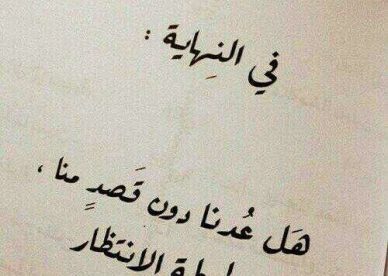 في النِهاية :
هَل عُدنا دون قَصدٍ منا ،
الانتظار